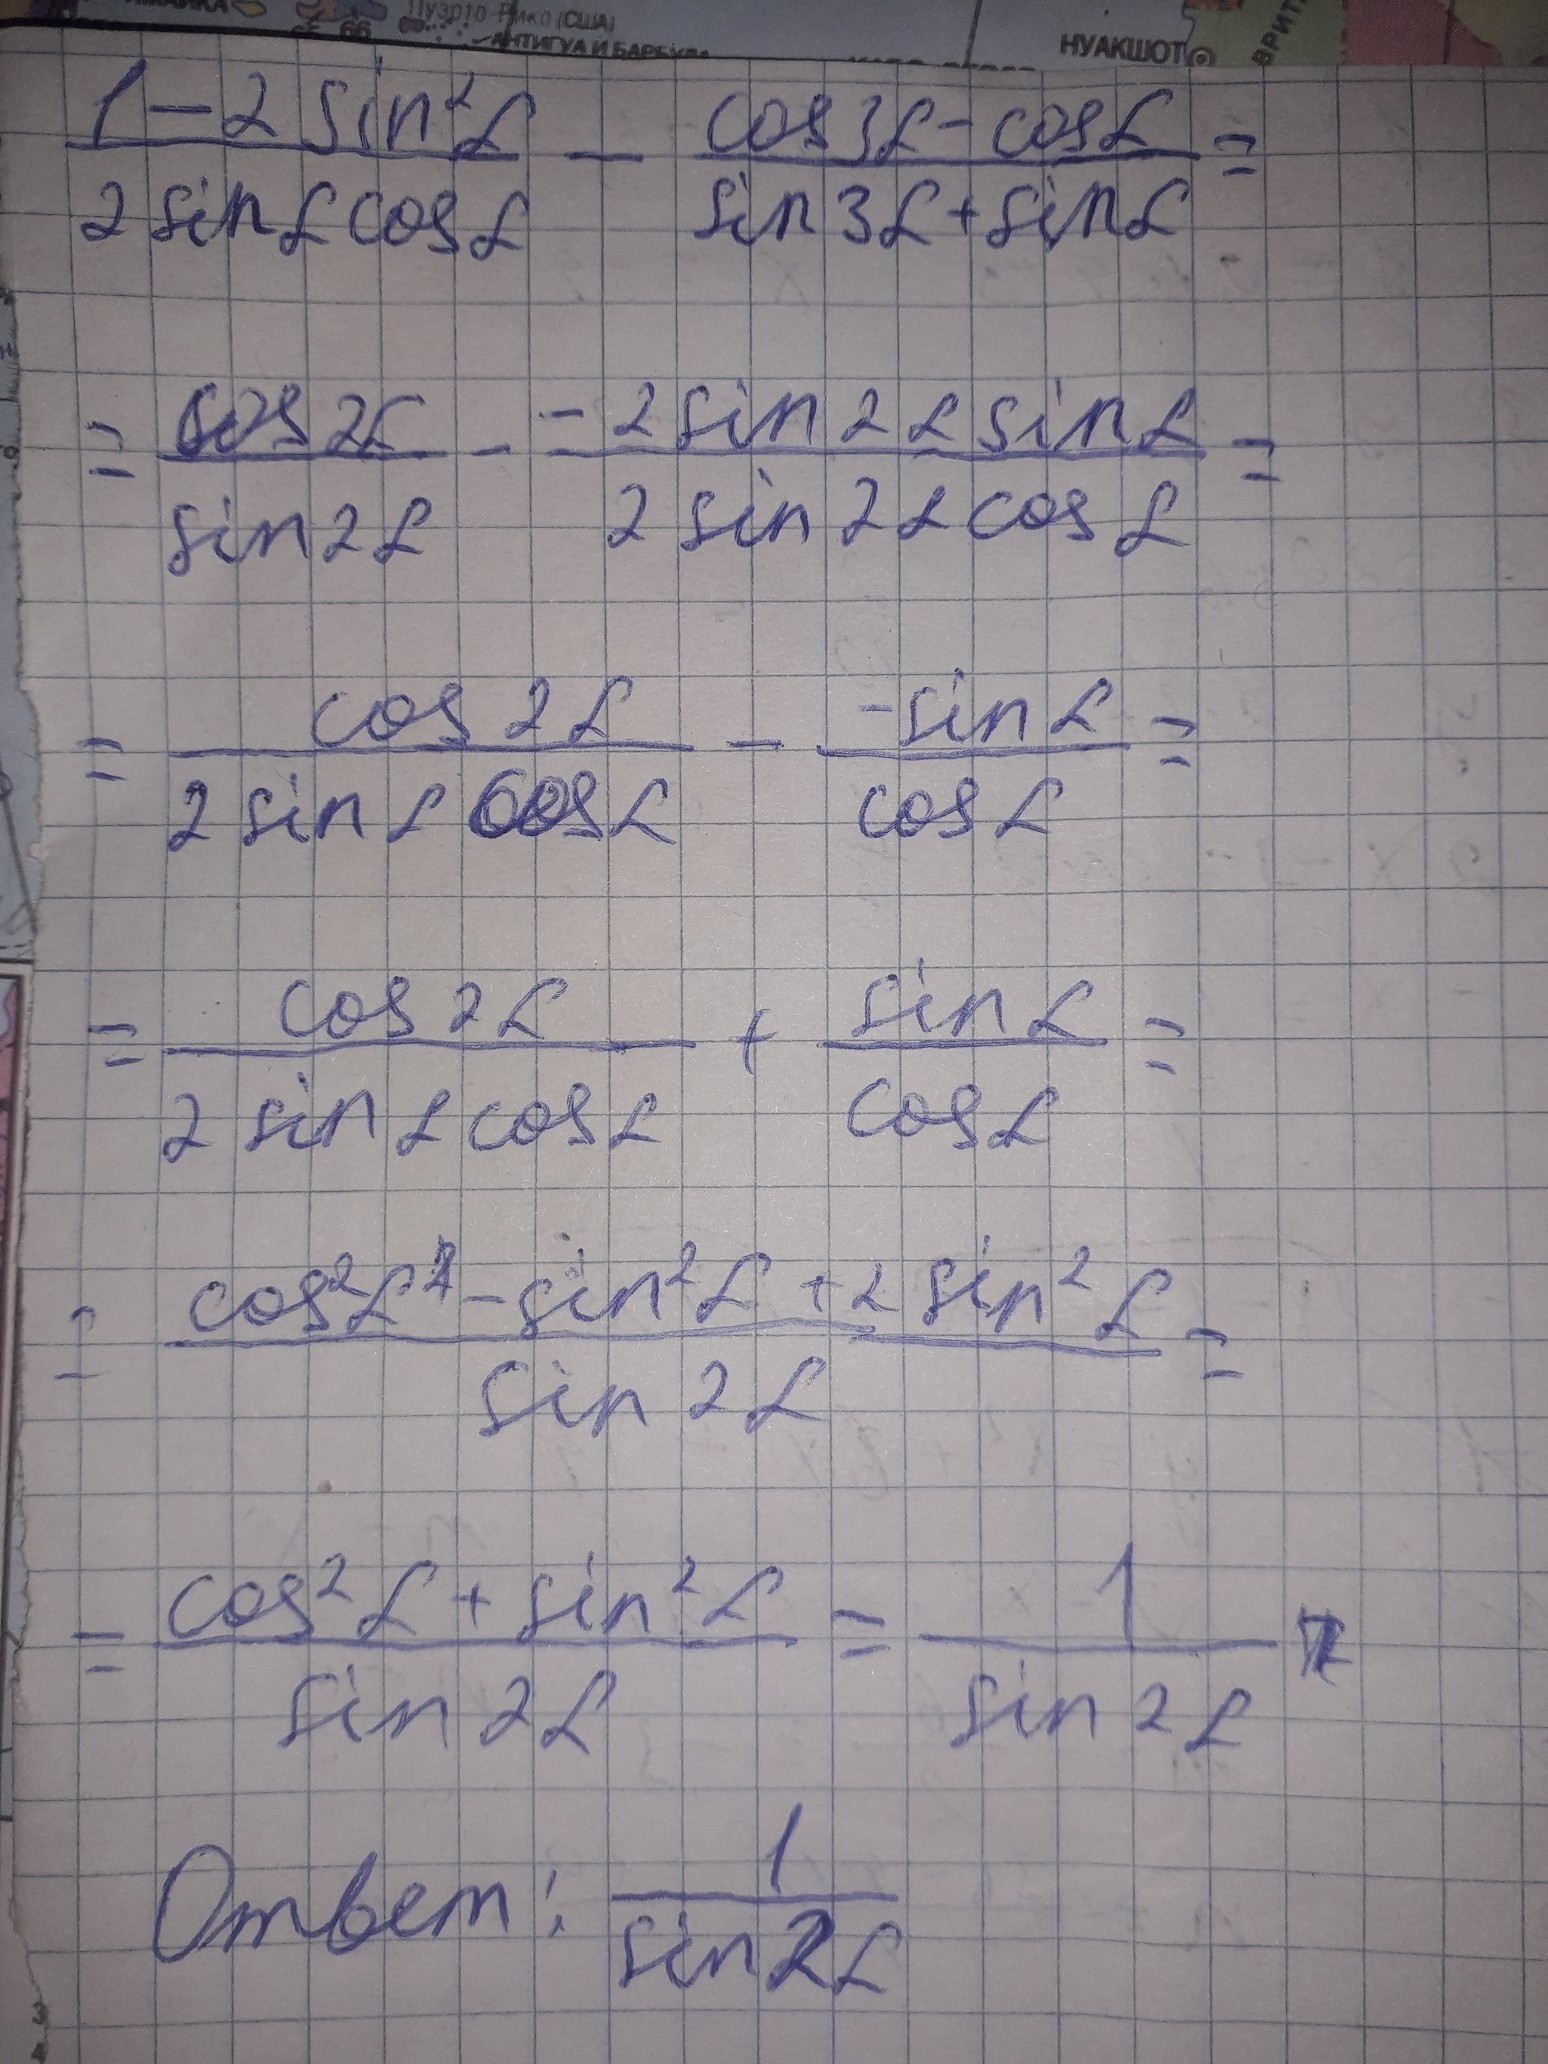 МАЙКА
Пуэрто-Рико (США)
66
АНТИГУА И БАРБУДА
НУАКШОТ
ВРИТ
(1 − 2 sin²α)/(2 sinα cosα) − (cos3α − cosα)/(sin3α + sinα) =
= cos2α/sin2α − (−2 sin2α sinα)/(2 sin2α cosα) =
= cos2α/(2 sinα cosα) − (−sinα)/cosα =
= cos2α/(2 sinα cosα) + sinα/cosα =
= (cos²α − sin²α + 2 sin²α)/sin2α =
= (cos²α + sin²α)/sin2α = 1/sin2α
Ответ: 1/sin2α